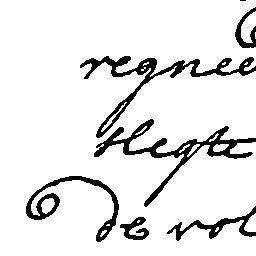 regnee
slegte
de vol